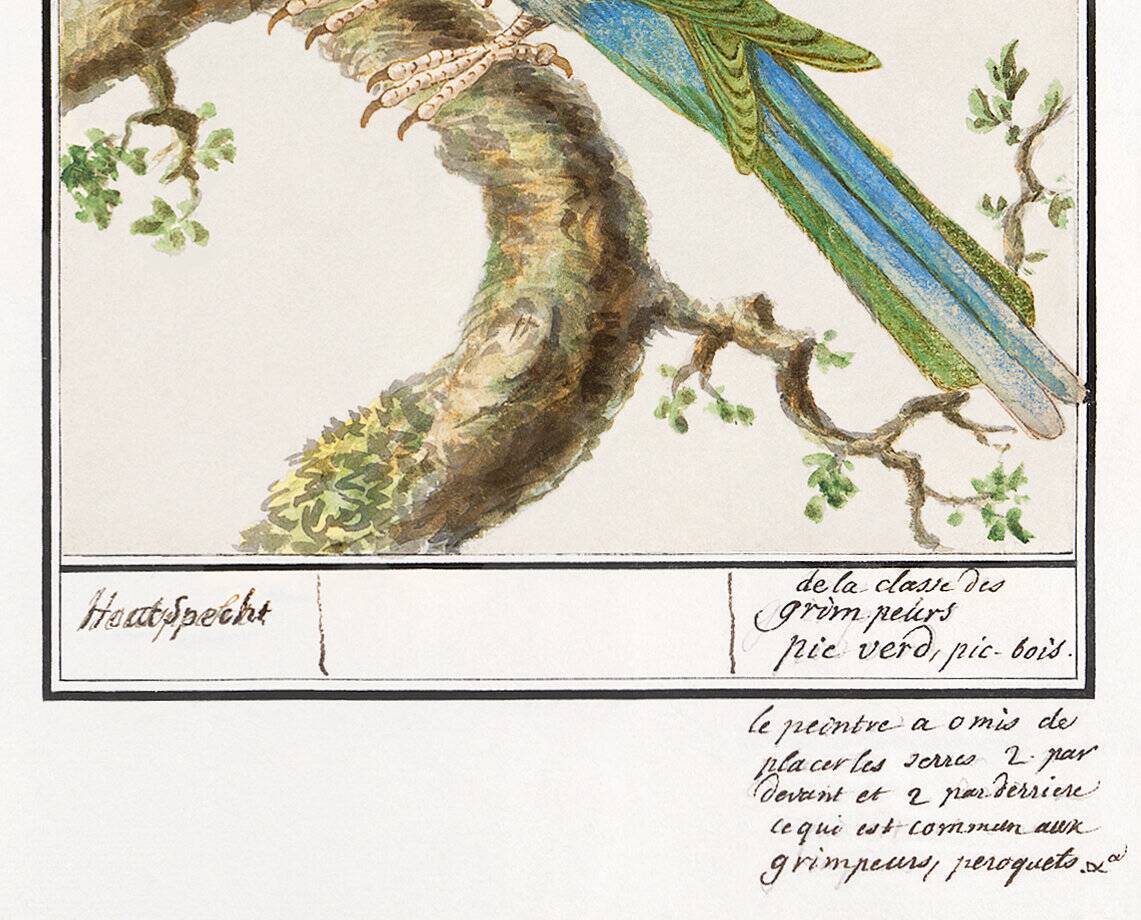 HoutSpecht
de la classe des
grimpeurs
pic verd, pic-bois.
le peintre a omis de
placer les serres 2 par
devant et 2 par derriere
ce qui est commun aux
grimpeurs, peroquets. &a